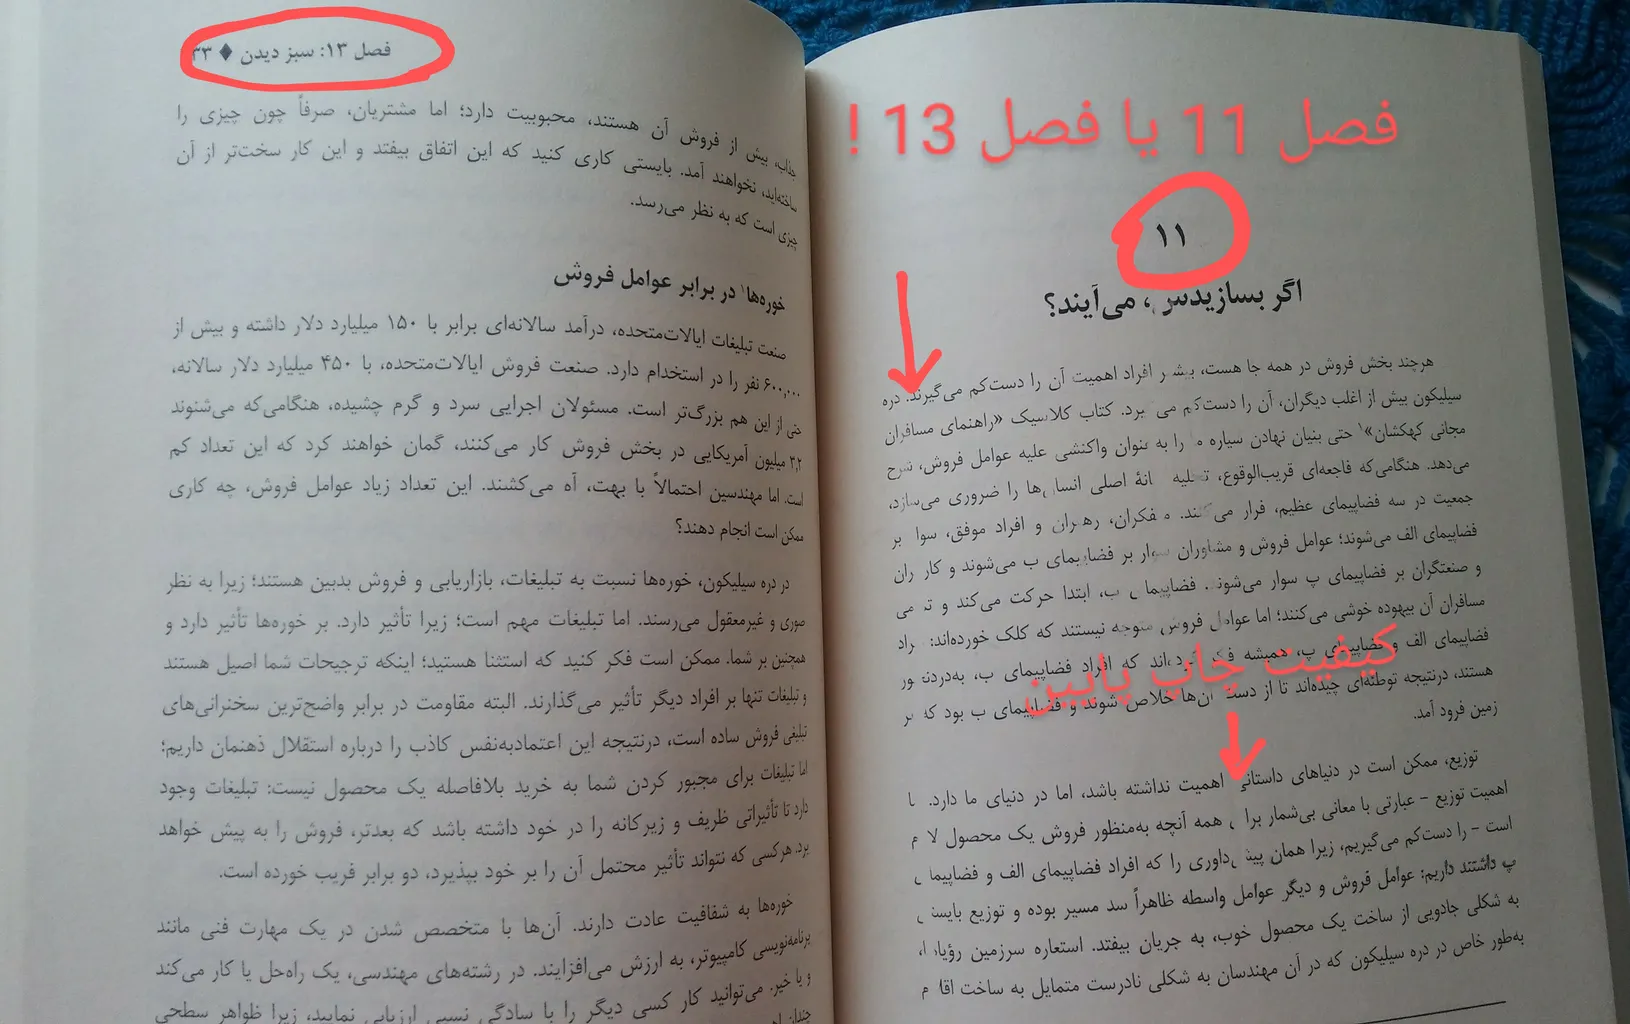 فصل 11 یا فصل 13 !
۱۱
اگر بسازیدش، می‌آیند؟
هرچند بخش فروش در همه جا هست، بیشتر افراد اهمیت آن را دست‌کم می‌گیرند. دره
سیلیکون بیش از اغلب دیگران، آن را دست‌کم می برد. کتاب کلاسیک «راهنمای مسافران
مجانی کهکشان»۱ حتی بنیان نهادن سیاره ما را به عنوان واکنشی علیه عوامل فروش، شرح
می‌دهد. هنگامی‌که فاجعه‌ای قریب‌الوقوع، تخلیه خانۀ اصلی انسان‌ها را ضروری می‌سازد،
جمعیت در سه فضاپیمای عظیم، فرار می‌کنند. متفکران، رهبران و افراد موفق، سوار بر
فضاپیمای الف می‌شوند؛ عوامل فروش و مشاوران سوار بر فضاپیمای ب می‌شوند و کارگران
و صنعتگران بر فضاپیمای پ سوار می‌شوند. فضاپیمای ب، ابتدا حرکت می‌کند و تمامی
مسافران آن بیهوده خوشی می‌کنند؛ اما عوامل فروش متوجه نیستند که کلک خورده‌اند: افراد
فضاپیمای الف و فضاپیمای پ، همیشه فکر کرده‌اند که افراد فضاپیمای ب، به‌دردنخور
کیفیت چاپ پایین
هستند، درنتیجه توطئه‌ای چیده‌اند تا از دست آن‌ها خلاص شوند و فضاپیمای ب بود که بر
زمین فرود آمد.
توزیع، ممکن است در دنیاهای داستانی اهمیت نداشته باشد، اما در دنیای ما دارد. ما
اهمیت توزیع – عبارتی با معانی بی‌شمار برای همه آنچه به‌منظور فروش یک محصول لازم
است – را دست‌کم می‌گیریم، زیرا همان پیش‌داوری را که افراد فضاپیمای الف و فضاپیمای
پ داشتند داریم: عوامل فروش و دیگر عوامل واسطه ظاهراً سد مسیر بوده و توزیع بایستی
به شکلی جادویی از ساخت یک محصول خوب، به جریان بیفتد. استعاره سرزمین رؤیاها،
به‌طور خاص در دره سیلیکون که در آن مهندسان به شکلی نادرست متمایل به ساخت اقلام
فصل ۱۳: سبز دیدن ♦ ۳۳
جذاب، بیش از فروش آن هستند، محبوبیت دارد؛ اما مشتریان، صرفاً چون چیزی را
ساخته‌اید، نخواهند آمد. بایستی کاری کنید که این اتفاق بیفتد و این کار سخت‌تر از آن
چیزی است که به نظر می‌رسد.
خوره‌ها۱ در برابر عوامل فروش
صنعت تبلیغات ایالات‌متحده، درآمد سالانه‌ای برابر با ۱۵۰ میلیارد دلار داشته و بیش از
۶۰۰,۰۰۰ نفر را در استخدام دارد. صنعت فروش ایالات‌متحده، با ۴۵۰ میلیارد دلار سالانه،
حتی از این هم بزرگ‌تر است. مسئولان اجرایی سرد و گرم چشیده، هنگامی‌که می‌شنوند
۳٫۲ میلیون آمریکایی در بخش فروش کار می‌کنند، گمان خواهند کرد که این تعداد کم
است. اما مهندسین احتمالاً با بهت، آه می‌کشند. این تعداد زیاد عوامل فروش، چه کاری
ممکن است انجام دهند؟
در دره سیلیکون، خوره‌ها نسبت به تبلیغات، بازاریابی و فروش بدبین هستند؛ زیرا به نظر
صوری و غیرمعقول می‌رسند. اما تبلیغات مهم است؛ زیرا تأثیر دارد. بر خوره‌ها تأثیر دارد و
همچنین بر شما. ممکن است فکر کنید که استثنا هستید؛ اینکه ترجیحات شما اصیل هستند
و تبلیغات تنها بر افراد دیگر تأثیر می‌گذارند. البته مقاومت در برابر واضح‌ترین سخنرانی‌های
تبلیغی فروش ساده است، درنتیجه این اعتمادبه‌نفس کاذب را درباره استقلال ذهنمان داریم؛
اما تبلیغات برای مجبور کردن شما به خرید بلافاصله یک محصول نیست: تبلیغات وجود
دارد تا تأثیراتی ظریف و زیرکانه را در خود داشته باشد که بعدتر، فروش را به پیش خواهد
برد. هرکسی که نتواند تأثیر محتمل آن را بر خود بپذیرد، دو برابر فریب خورده است.
خوره‌ها به شفافیت عادت دارند. آن‌ها با متخصص شدن در یک مهارت فنی مانند
برنامه‌نویسی کامپیوتر، به ارزش می‌افزایند. در رشته‌های مهندسی، یک راه‌حل یا کار می‌کند
و یا خیر. می‌توانید کار کسی دیگر را با سادگی نسبی ارزیابی نمایید، زیرا ظواهر سطحی